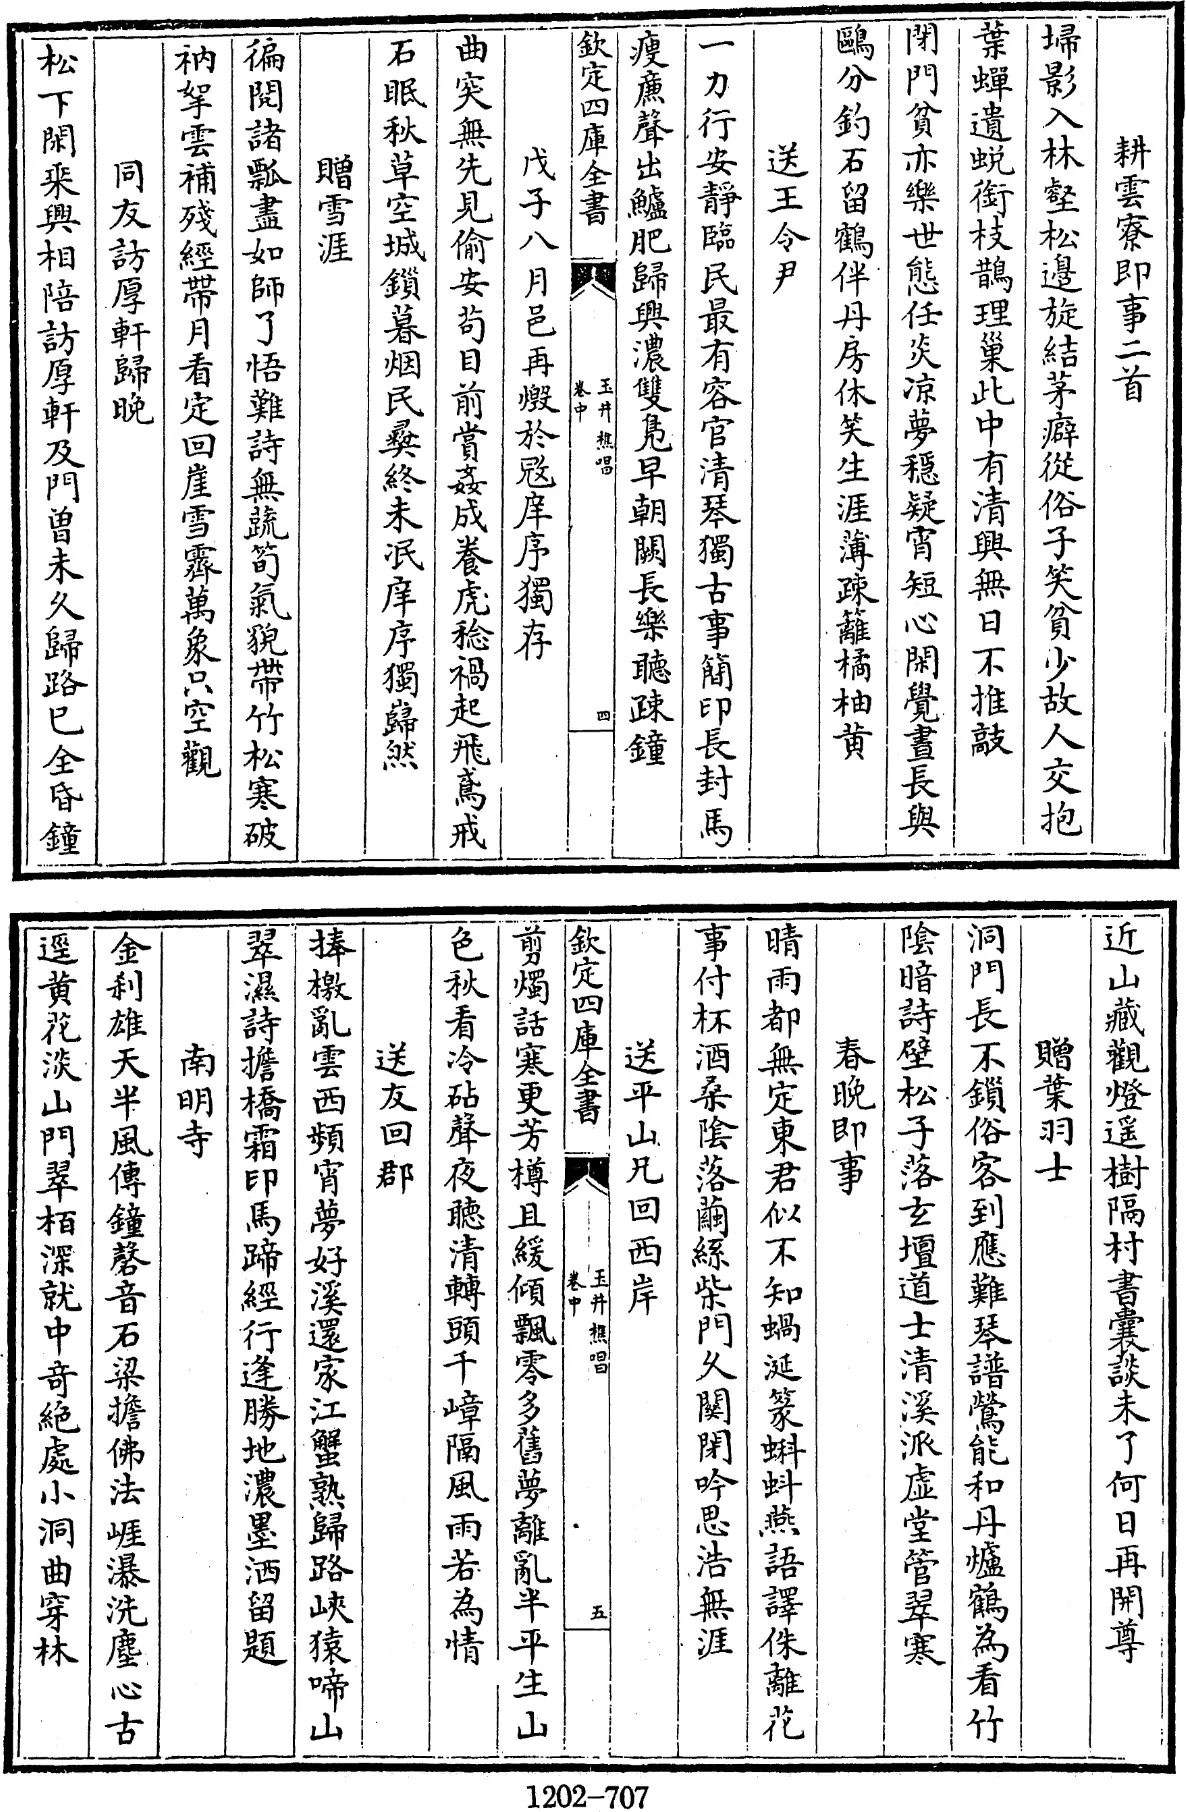 耕雲寮即事二首
埽影入林壑松邊旋結茅癖從俗子笑貧少故人交抱
葉蟬遺蜕銜枝鵲理巢此中有清興無日不推敲
閉門貧亦樂世態任炎凉夢穩疑宵短心閑覺晝長與
鷗分釣石留鶴伴丹房休笑生涯薄疎籬橘柚黄
送王令尹
一力行安靜臨民最有容官清琴獨古事簡印長封馬
瘦廉聲出鱸肥歸興濃雙鳬早朝闕長樂聽疎鐘
欽定四庫全書
玉井樵唱
卷中
四
戊子八月邑再燬於㓂庠序獨存
曲突無先見偷安苟目前賞姦成養虎稔禍起飛鳶戒
石眠秋草空城鎖暮烟民彛終未泯庠序獨巋然
贈雪涯
徧閱諸瓢盡如師了悟難詩無蔬筍氣貌帶竹松寒破
衲挐雲補殘經帶月看定回崖雪霽萬象只空觀
同友訪厚軒歸晩
松下閑乘興相陪訪厚軒及門曾未久歸路已全昏鐘
近山藏觀燈遥樹隔村書囊談未了何日再開尊
贈葉羽士
洞門長不鎖俗客到應難琴譜鶯能和丹爐鶴為看竹
陰暗詩壁松子落玄壇道士清溪派虚堂管翠寒
春晩即事
晴雨都無定東君似不知蝸涎篆蝌蚪燕語譯侏離花
事付杯酒桑陰落繭絲柴門久闗閉吟思浩無涯
送平山兄回西岸
剪燭話寒更芳樽且緩傾飄零多舊夢離亂半平生山
色秋看冷砧聲夜聽清轉頭千嶂隔風雨若為情
欽定四庫全書
玉井樵唱
卷中
五
送友回郡
捧檄亂雲西頻宵夢好溪還家江蟹熟歸路峽猿啼山
翠濕詩擔橋霜印馬蹄經行逢勝地濃墨洒留題
南明寺
金刹雄天半風傳鐘磬音石梁擔佛法崕瀑洗塵心古
逕黄花淡山門翠栢深就中奇絶處小洞曲穿林
1202-707